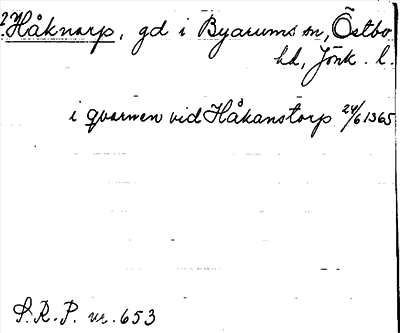 2. Håknarp, gd i Byarums sn, Östbo
hd, Jönk. l.
i qvarnen vid Håkanstorp 24/6 1365
S.R.P. nr. 653